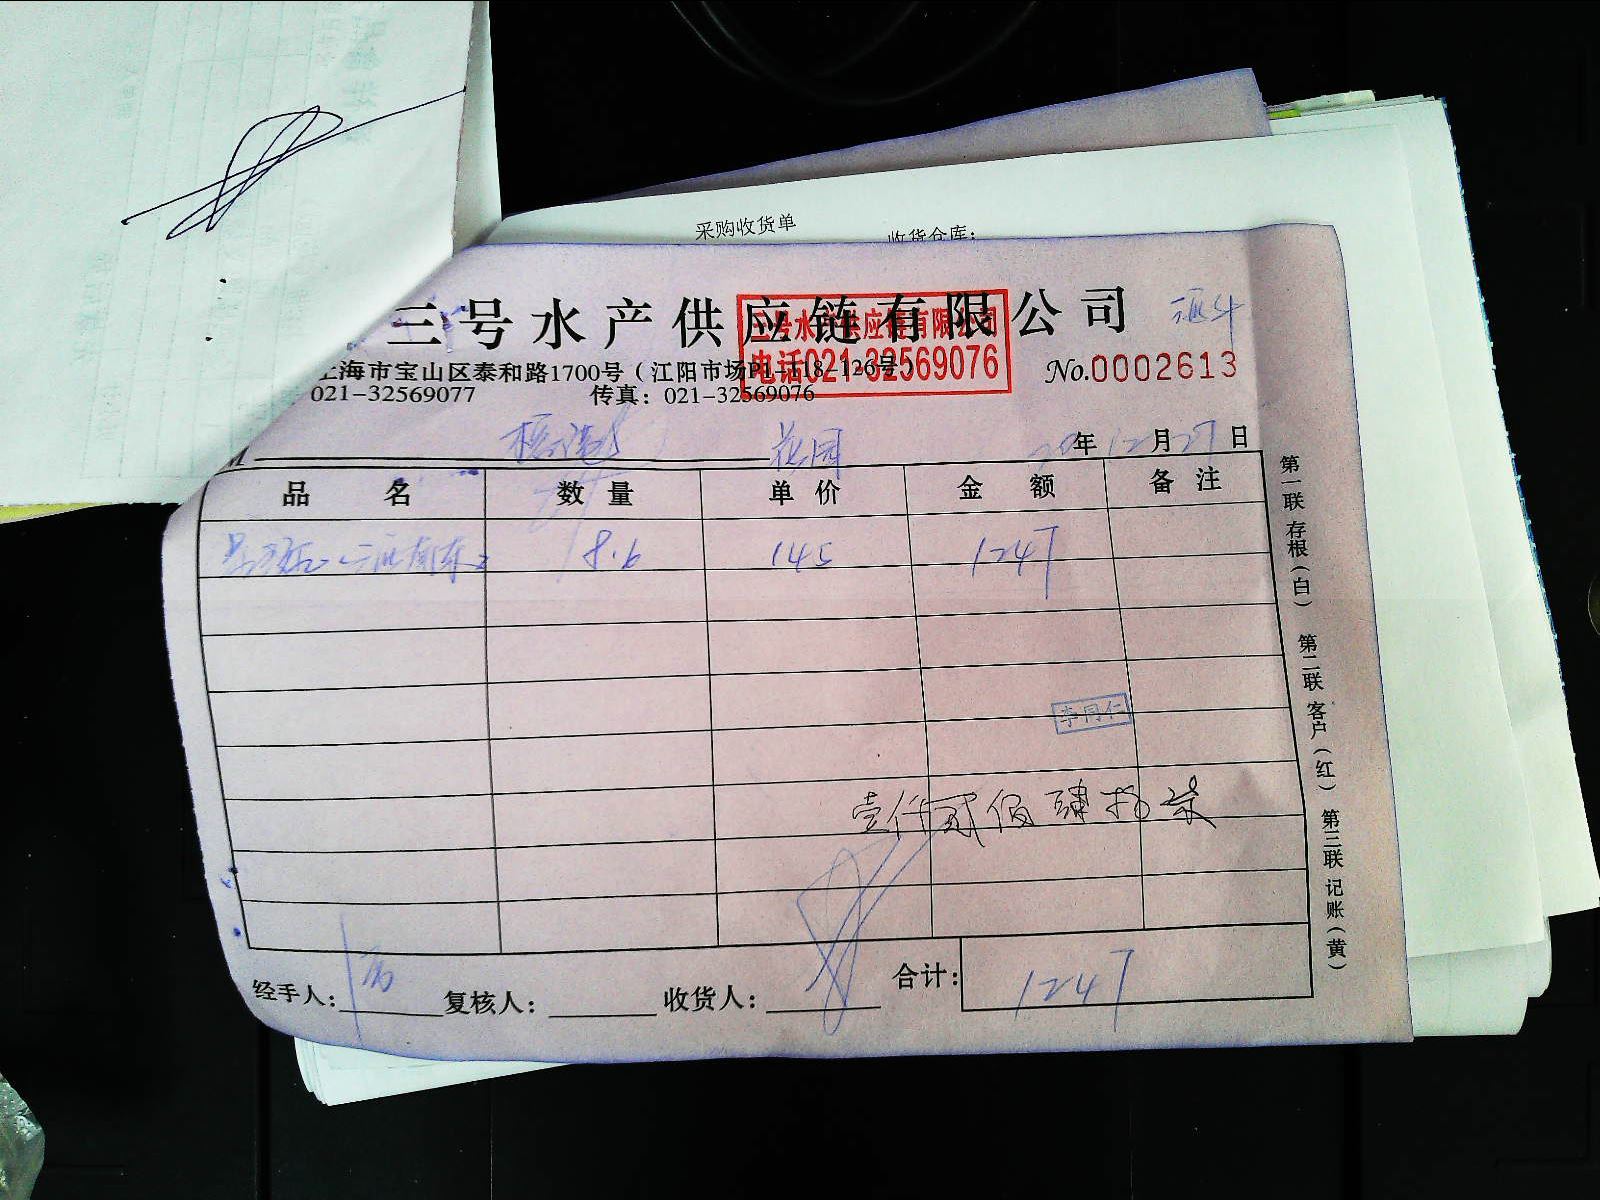 采购收货单
收货仓库:
三号水产供应链有限公司
三号水产供应链有限公司
电话021-32569076
上海市宝山区泰和路1700号(江阳市场P1-118-126号)
No.0002613
021-32569077 传真:021-32569076
花园 年12月27日
品名 数量 单价 金额 备注
8.6 145 1247
李同仁
壹仟贰佰肆拾柒
经手人: 复核人: 收货人: 合计: 1247
第一联 存根(白) 第二联 客户(红) 第三联 记账(黄)